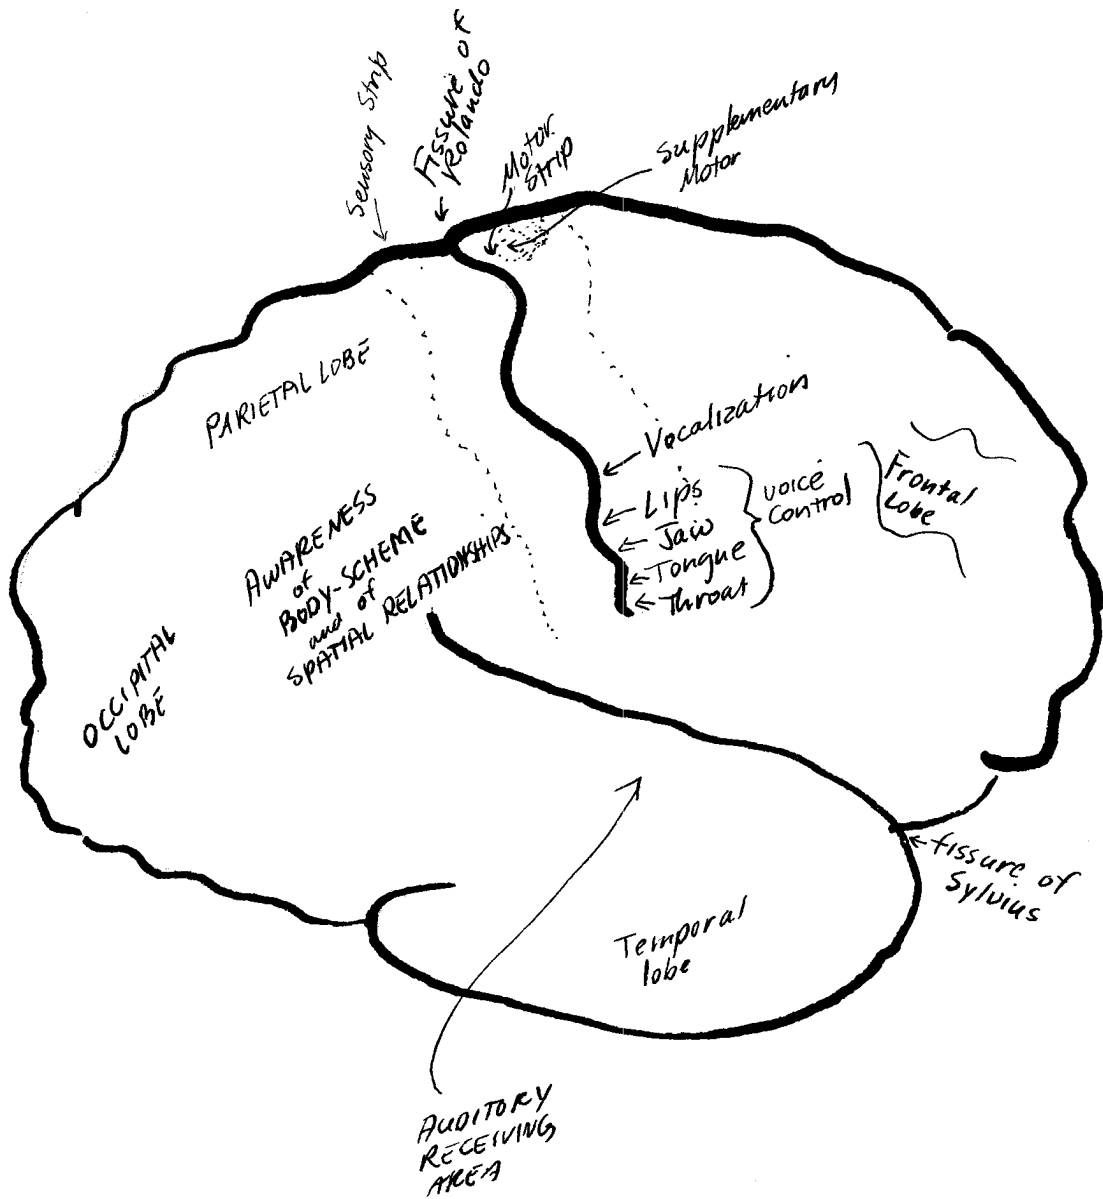 Sensory Strip
Fissure of
Rolando
Motor
Strip
Supplementary
Motor
PARIETAL LOBE
Vocalization
Lips
Jaw
Tongue
Throat
Voice
Control
Frontal
Lobe
AWARENESS
of
BODY-SCHEME
and of
SPATIAL RELATIONSHIPS
OCCIPITAL
LOBE
fissure of
Sylvius
Temporal
lobe
AUDITORY
RECEIVING
AREA